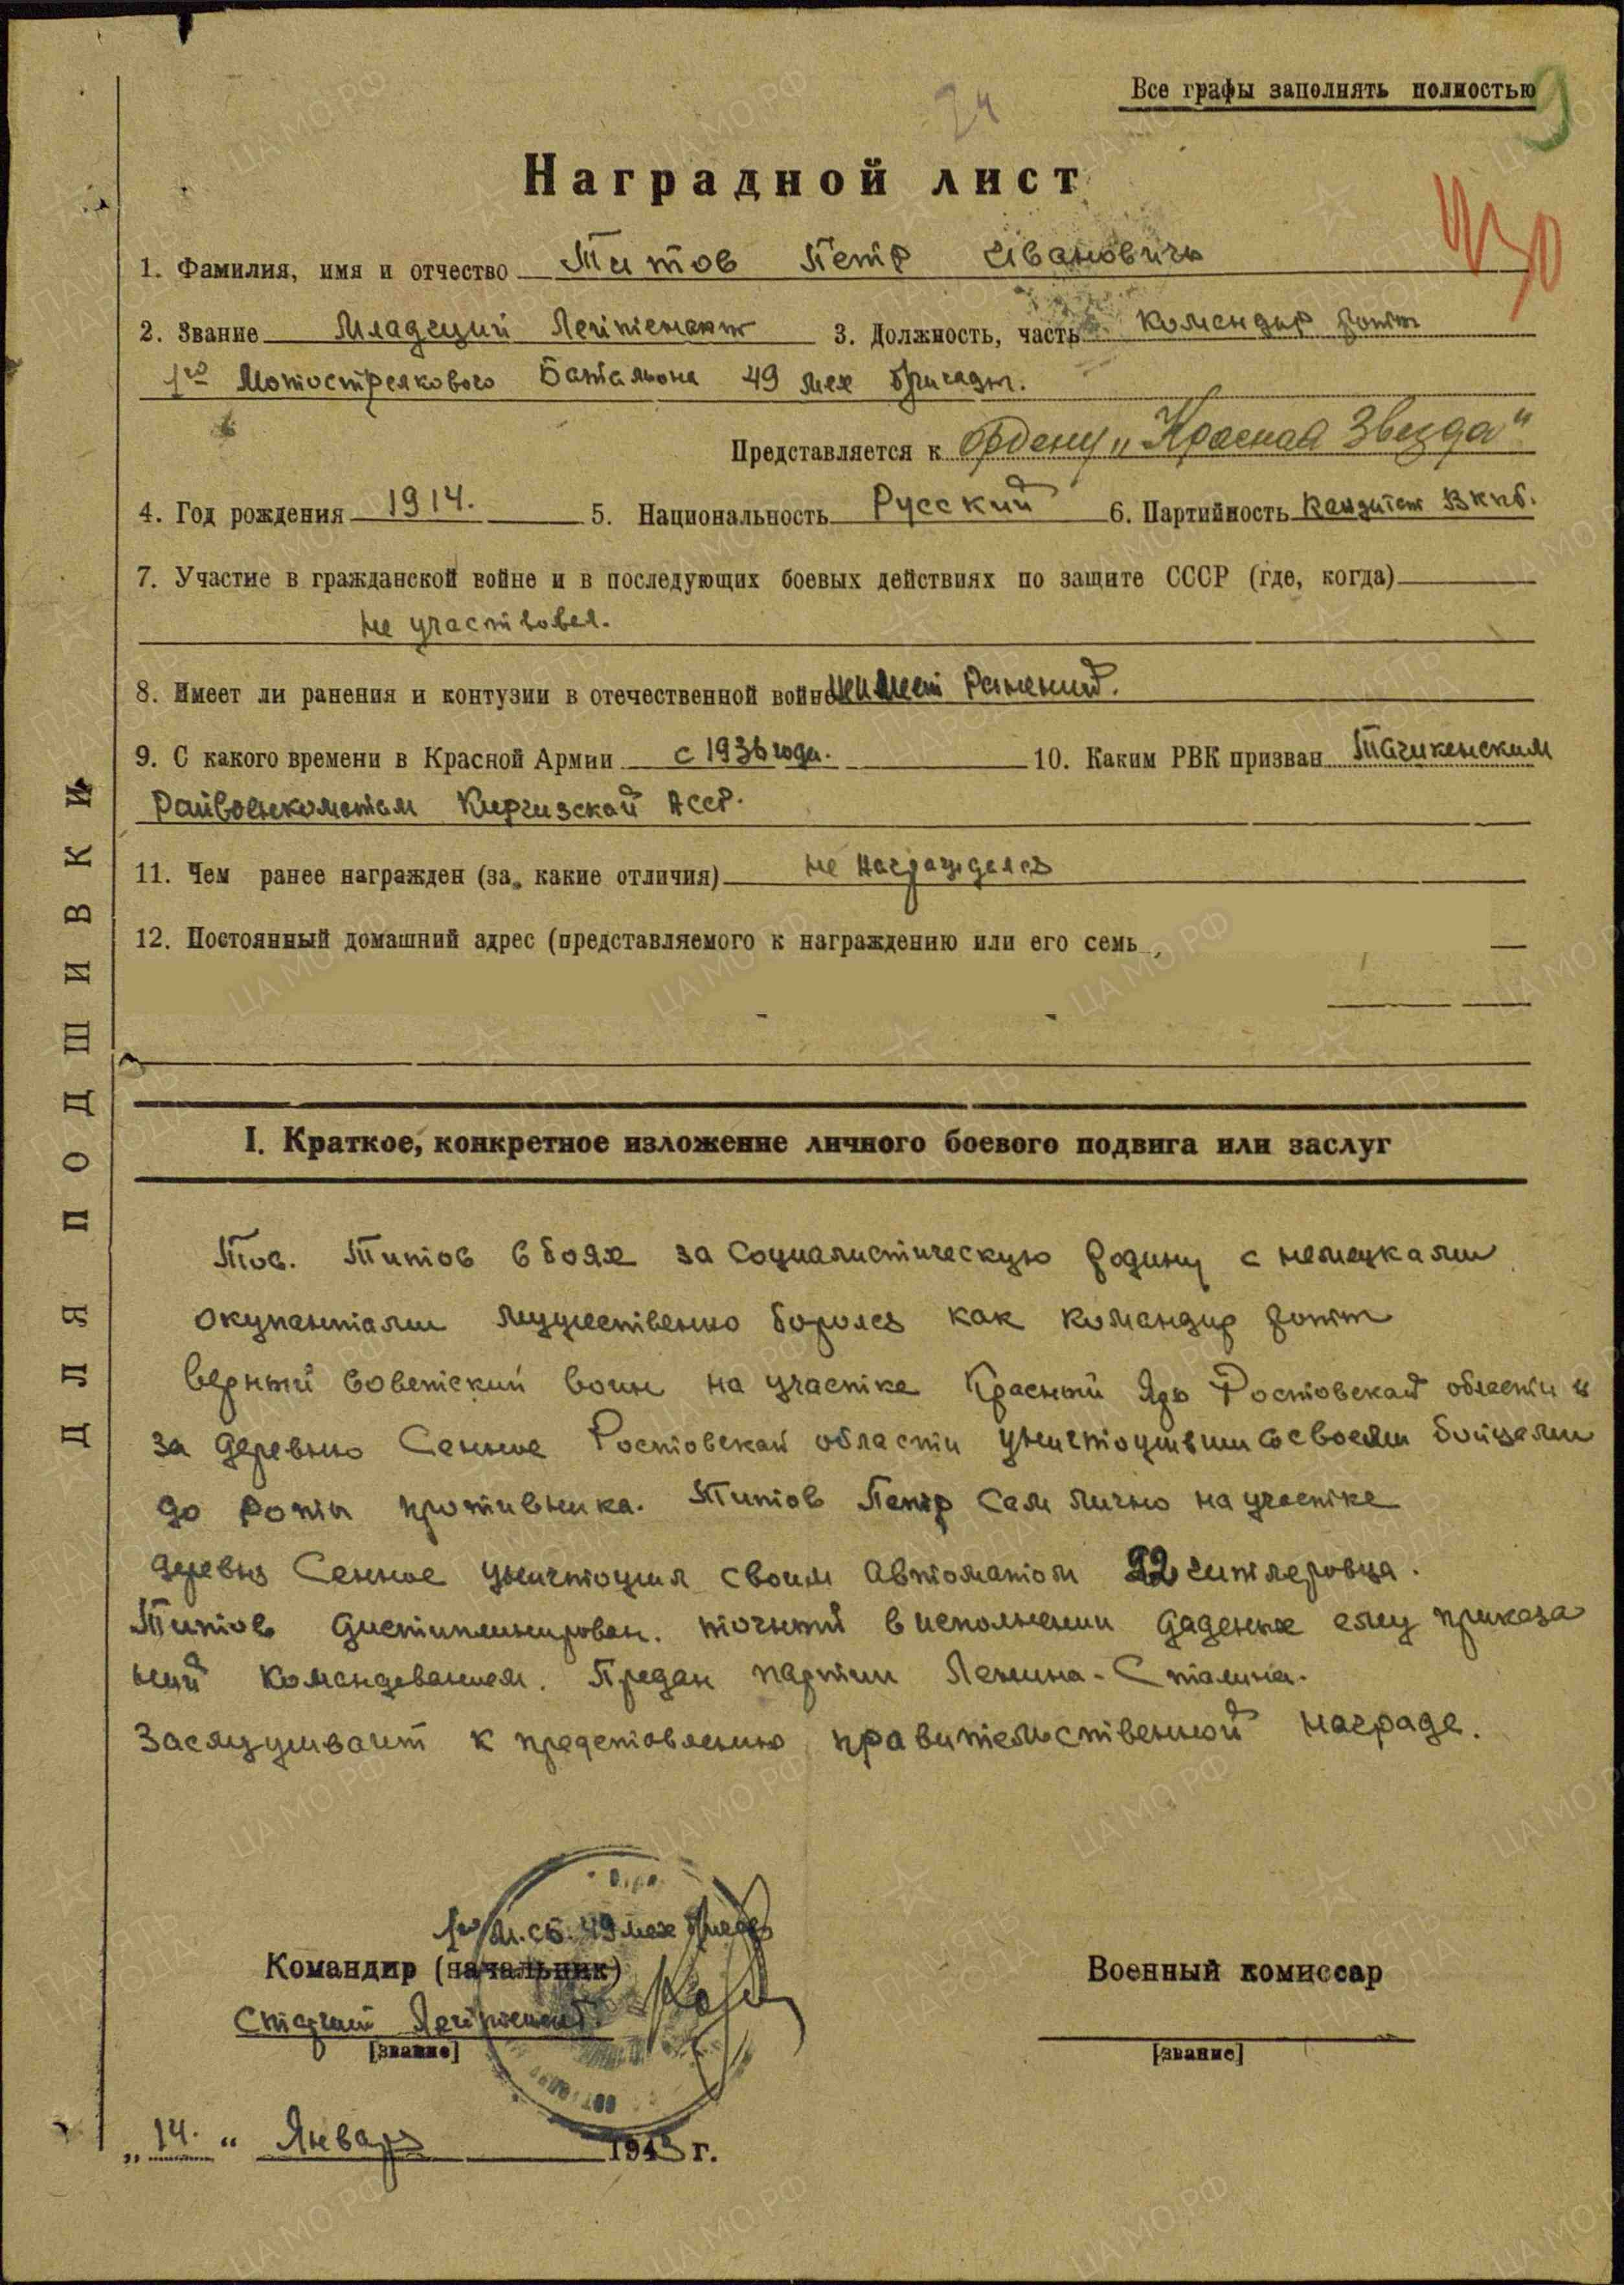 Все графы заполнять полностью
9
24
Наградной лист
1. Фамилия, имя и отчество Титов Петр Ивановичь
2. Звание Младший Лейтенант 3. Должность, часть Командир роты
1го Мотострелкового Баталиона 49 мех бригады.
Представляется к ордену „Красная Звезда“
4. Год рождения 1914. 5. Национальность Русский 6. Партийность Кандитат ВКПб.
7. Участие в гражданской войне и в последующих боевых действиях по защите СССР (где, когда)
не участвовал.
8. Имеет ли ранения и контузии в отечественной войне неимеет Ранений.
9. С какого времени в Красной Армии с 1936 года. 10. Каким РВК призван
Райвоенкоматам Киргизской АССР.
11. Чем ранее награжден (за какие отличия) не награждался
12. Постоянный домашний адрес (представляемого к награждению или его семь
I. Краткое, конкретное изложение личного боевого подвига или заслуг
Тов. Титов в боях за Социалистическую родину с немецкими
окупантами мужественно боролся как командир роты
верный советский воин на участке Красный Яр Ростовской области и
за деревню Сенное Ростовской области уничтожившии со своеми бойцами
до роты противника. Титов Петр Сам лично на участке
деревня Сенное уничтожил своим автоматом 22 гитлеровца.
Титов дистиплинирован. точный в исполнении даденых ему приказа
ний командованием. Предан партии Ленина-Сталина.
Заслуживает к представлению правительственной награде.
1го М.СБ. 49 мех бригады
Командир (начальник)
Военный комиссар
Старший Лейтенант
[звание]
[звание]
„14.“ Январь 1943 г.
ДЛЯ ПОДШИВКИ
ПАМЯТЬ НАРОДА
ЦА МО РФ